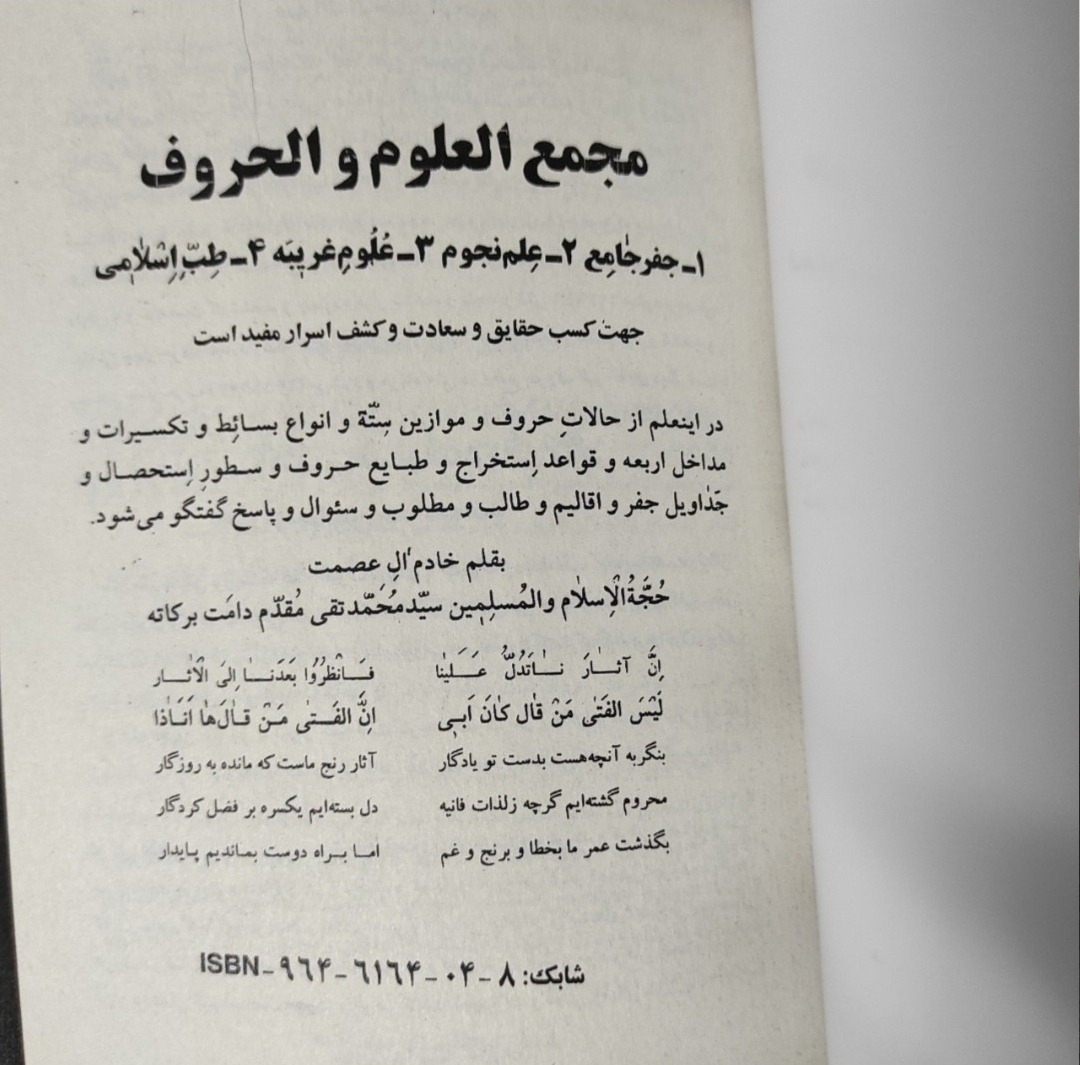 مجمع العلوم و الحروف
۱ـ جفر جٰامِع ۲ـ عِلم نجوم ۳ـ عُلُومِ غریبَه ۴ـ طِبّ اِسْلٰامی
جهت کسب حقایق و سعادت و کشف اسرار مفید است
در اینعلم از حالاتِ حروف و موازین سِتّة و انواع بسائِط و تکسیرات و
مداخل اربعه و قواعد اِستخراج و طبایع حروف و سطورِ اِستحصال و
جَداویل جفر و اقالیم و طالب و مطلوب و سئوال و پاسخ گفتگو می‌شود.
بقلم خادم آلِ عصمت
حُجَّةُالْاِسلٰام والمُسلِمِین سیّدمُحَمَّدتقی مُقدّم دامَت برکاته
اِنَّ آثٰارَ نٰاتَدُلُّ عَلَیْنٰا فَانْظُرُوٰا بَعَدَنٰا اِلیَ الْاٰثٰار
لَیْسَ الفَتٰی مَنْ قٰال کٰانَ اَبی اِنَّ الفَتٰی مَنْ قٰالَ هٰا اَنَاذٰا
بنگربه آنچه‌هست بدست تو یادگار آثار رنج ماست که مانده به روزگار
محروم گشته‌ایم گرچه زلذات فانیه دل بسته‌ایم یکسره بر فضل کردگار
بگذشت عمر ما بخطا و برنج و غم اما براه دوست بماندیم پایدار
شابک: ۸ - ۰۴ - ۶۱۶۴ - ۹۶۴ - ISBN